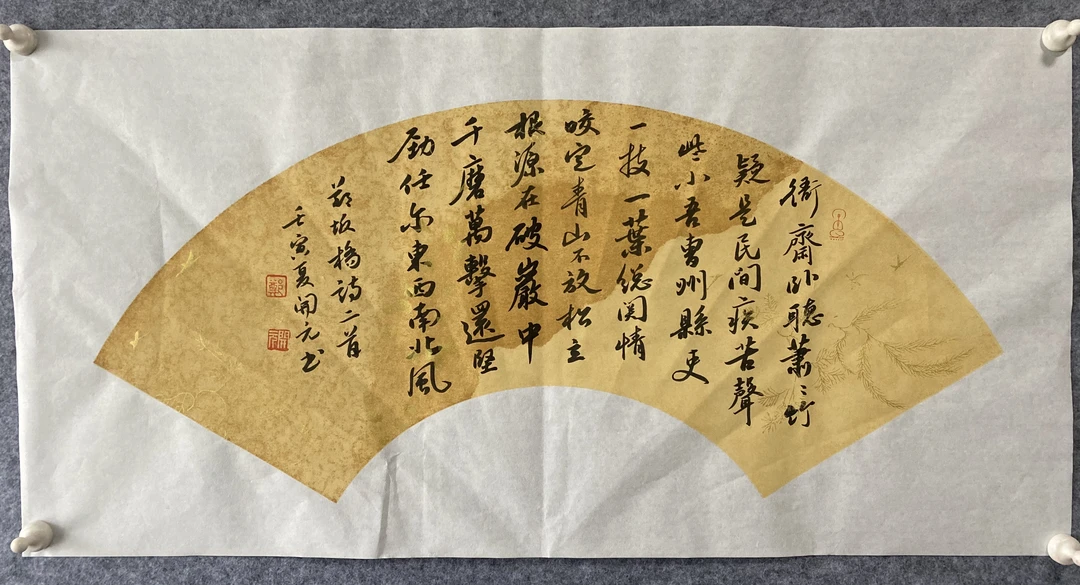 衙齋卧聽蕭〻竹
疑是民间疾苦聲
些小吾曹州縣吏
一枝一葉総関情
咬定青山不放松立
根源在破巖中
千磨萬擊還堅
劲任尔東西南北風
郑板橋詩二首
壬寅夏開元书